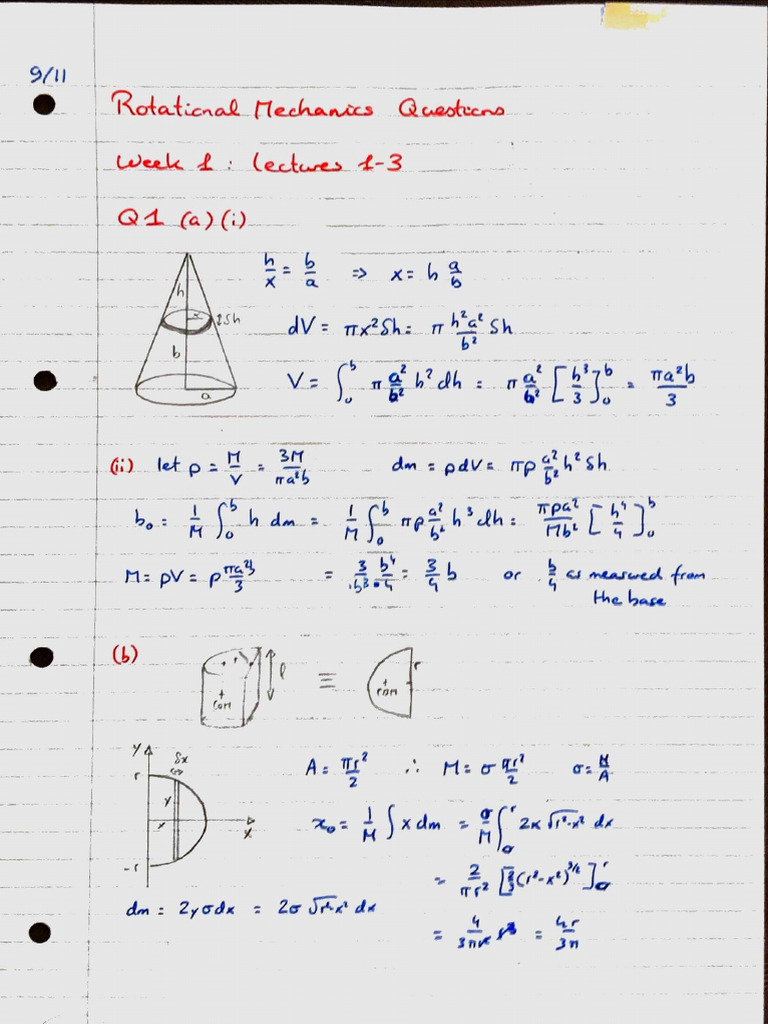 9/11
Rotational Mechanics Questions
Week 1 : Lectures 1-3
Q1 (a)(i)
h/x = b/a ⇒ x = h a/b
h
x
δh
b
a
dV = πx²δh = π h²a²/b² δh
V = ∫₀ᵇ π a²/b² h² dh = π a²/b² [h³/3]₀ᵇ = πa²b/3
(ii) let ρ = M/V = 3M/πa²b dm = ρdV = πρ a²/b² h² δh
h₀ = 1/M ∫₀ᵇ h dm = 1/M ∫₀ᵇ πρ a²/b² h³ dh = πρa²/Mb² [h⁴/4]₀ᵇ
M = ρV = ρ πa²b/3 = 3/b³ · b⁴/4 = 3/4 b or b/4 as measured from
the base
(b)
r
l
+
com
≡
r
+
com
y
δx
r
y
x
x
-r
A = πr²/2 ∴ M = σ πr²/2 σ = M/A
x₀ = 1/M ∫ x dm = σ/M ∫₀ʳ 2x √r²-x² dx
= 2/πr² [2/3 (r²-x²)^3/2]₀ʳ
dm = 2yσdx = 2σ √r²-x² dx
= 4/3πr² r³ = 4r/3π